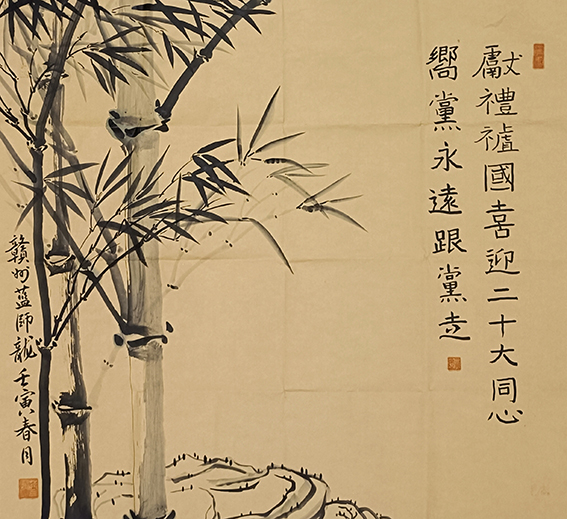 獻禮祖國喜迎二十大同心
嚮黨永遠跟黨走
贛州藍師龍壬寅春月